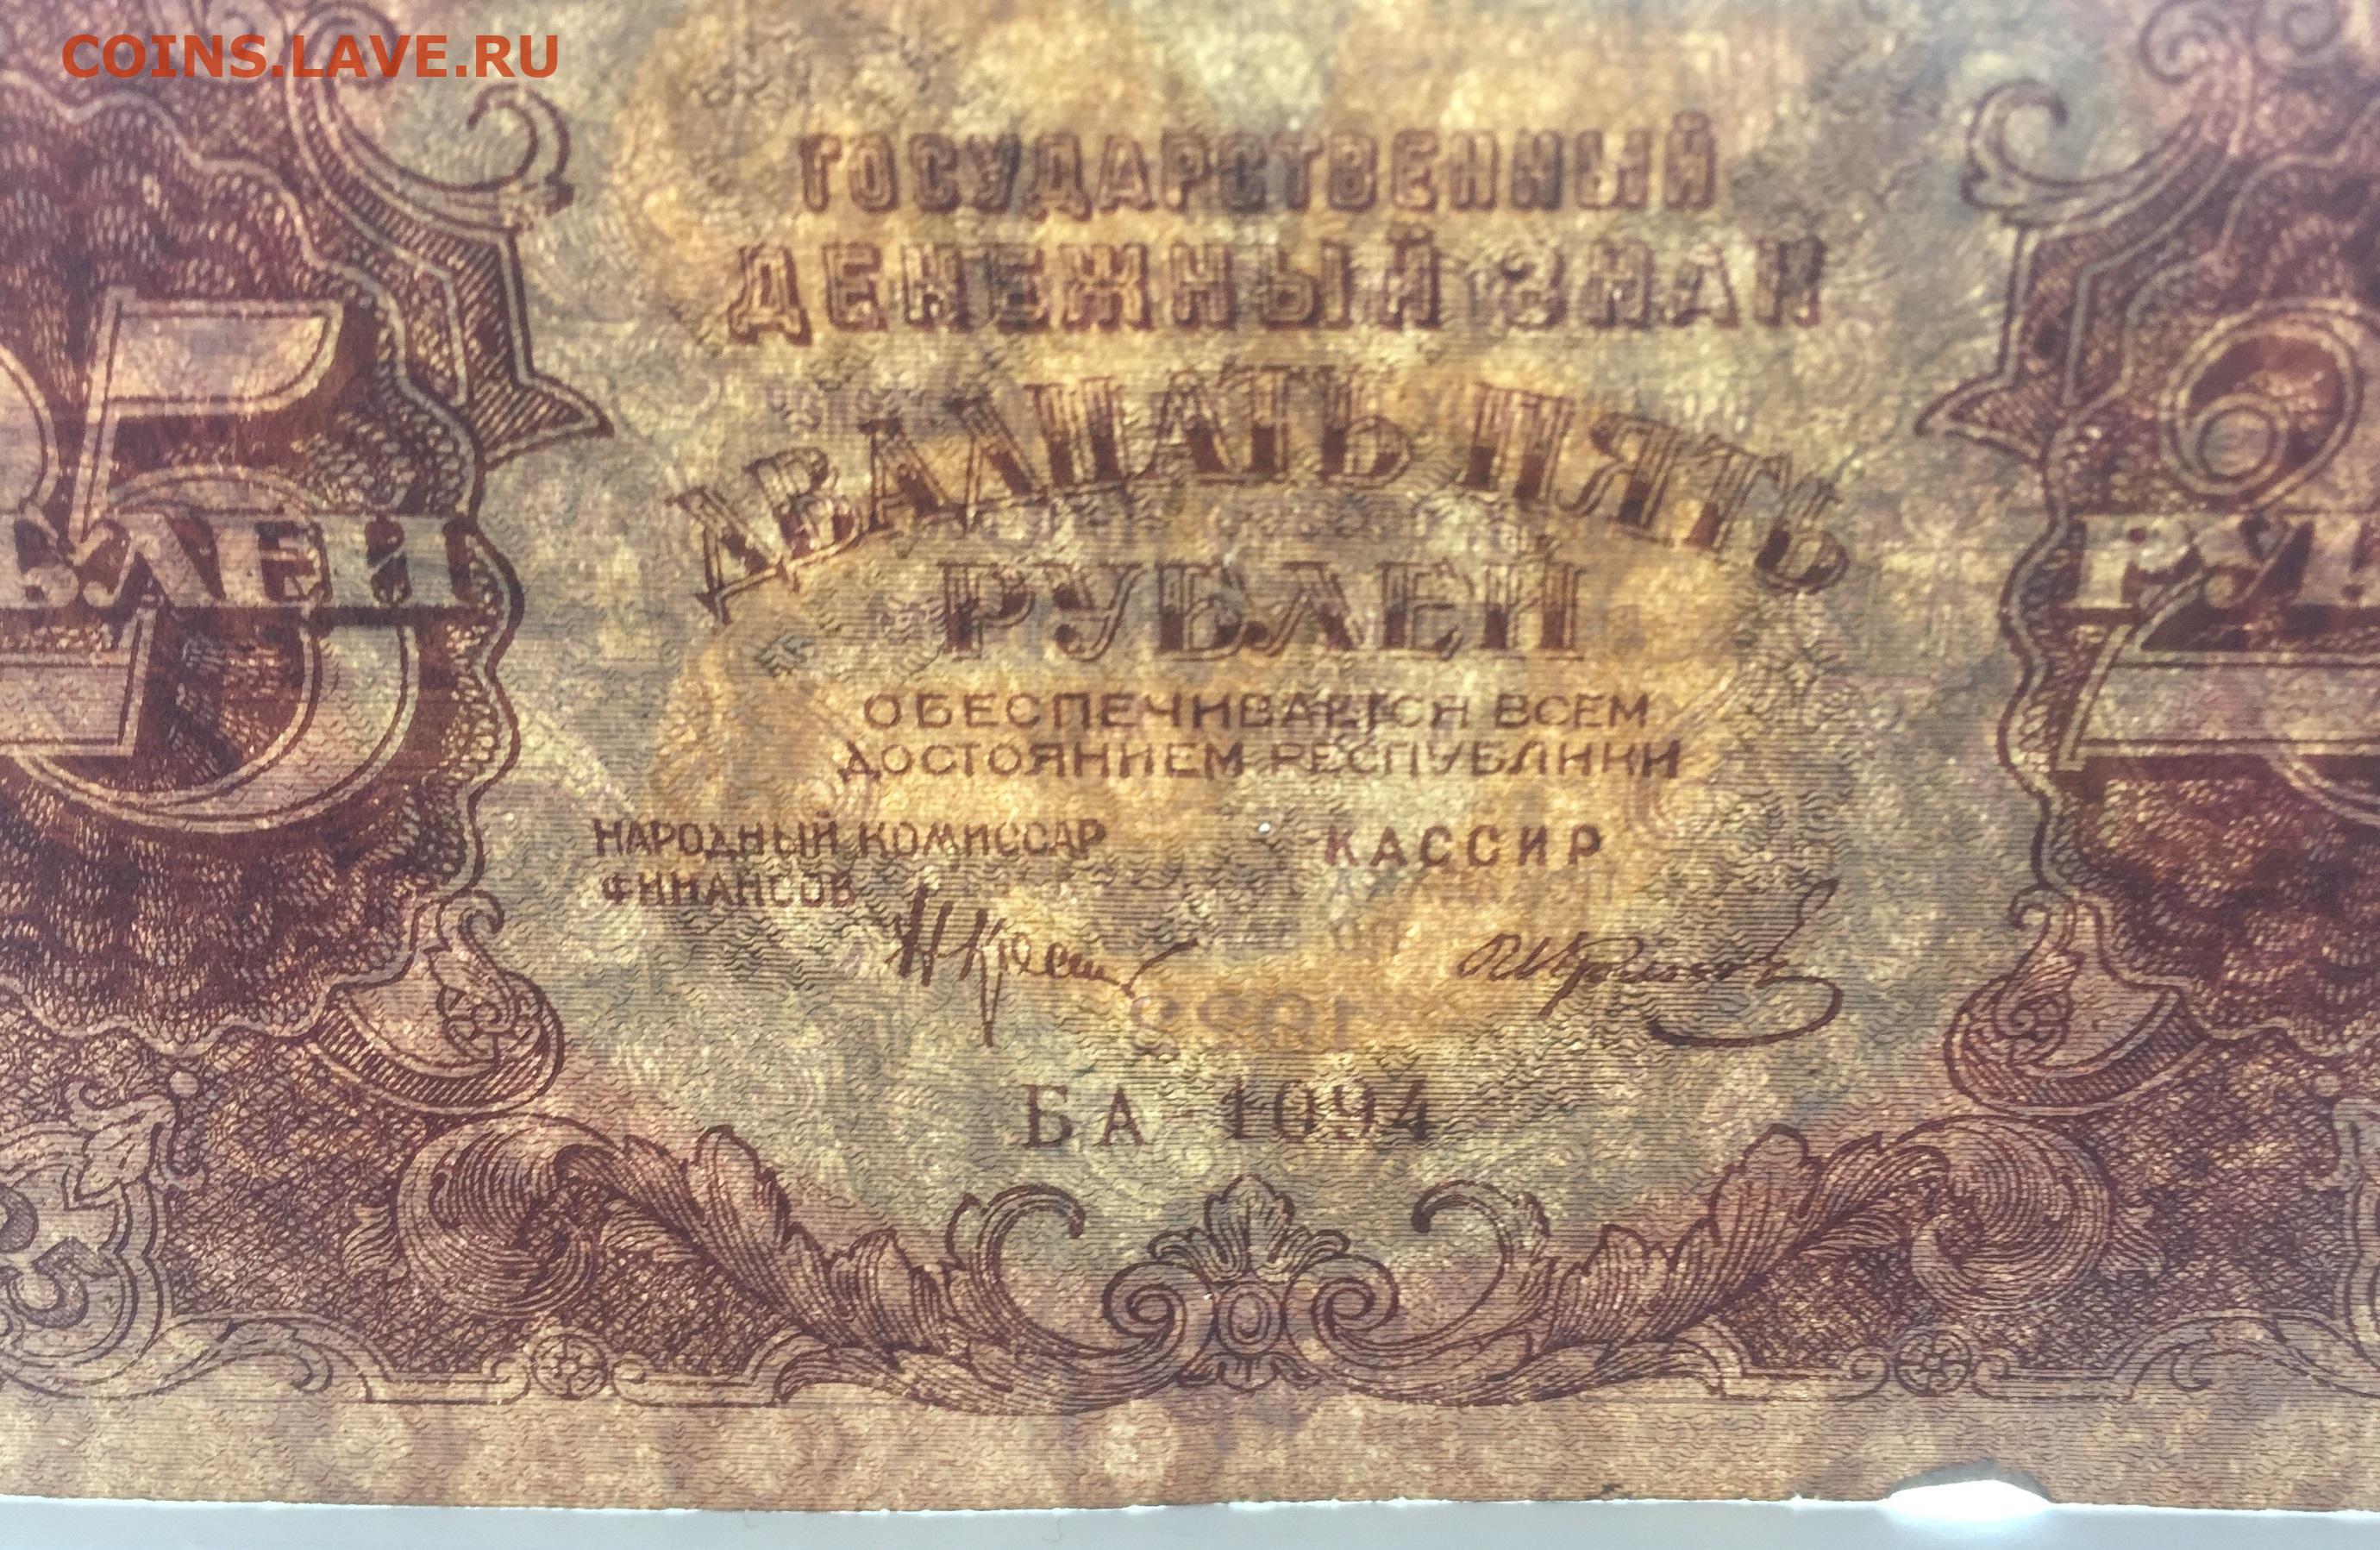 COINS.LAVE.RU
ГОСУДАРСТВЕННЫЙ
ДЕНЕЖНЫЙ ЗНАК
ДВАДЦАТЬ ПЯТЬ
РУБЛЕЙ
ОБЕСПЕЧИВАЕТСЯ ВСЕМ
ДОСТОЯНИЕМ РЕСПУБЛИКИ
НАРОДНЫЙ КОМИССАР КАССИР
ФИНАНСОВ
БА-1094
5
БЛЕЙ
2
РУБ